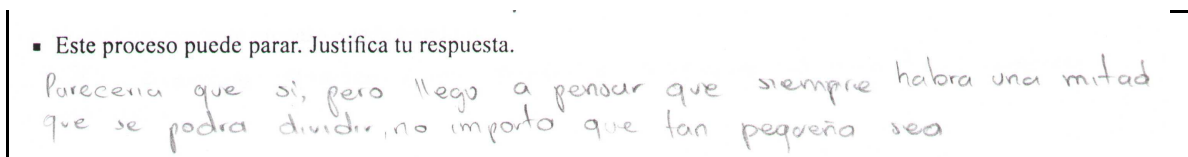 ▪ Este proceso puede parar. Justifica tu respuesta.
Pareceria que si, pero llego a pensar que siempre habra una mitad
que se podra dividir, no importa que tan pequeña sea